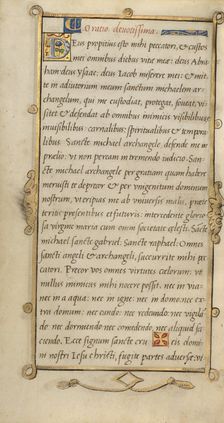 Oratio deuotissima.
Deus propitius esto mihi peccatori, et custos
mei omnibus diebus vitæ meæ: deus Abra
ham: deus Ysaac: deus Iacob miserere mei: et mit
te in adiutorium meum sanctum michaelem ar
changelum, qui me custodiat, protegat, foueat, vi
sitet et defendat ab omnibus inimicis visibilibus et
inuisibilibus: carnalibus: spiritualibus et tempora
libus. Sancte michael archangele defende me in
prelio: vt non peream in tremendo iudicio. San
cte michael archangele per gratiam quam habere
meruisti te deprecor et per vnigenitum dominum
nostrum, vt eripias me ab vniuersis malis, præ
teritis presentibus et futuris: intercedente glorio
sa virgine maria cum omni societate cælesti. Sancte
michael sancte gabriel: Sancte raphael: Omnes
sancti angeli et archangeli, succurrite mihi pec
catori. Precor vos omnes virtutes cælorum: vt
nullus inimicus mihi nocere possit, nec in via:
nec in aqua: nec in igne: nec in domo: nec ex
tra domum: nec eundo: nec redeundo: nec vigilā
do: nec dormiendo: nec comedendo: nec aliquid fa
ciendo. Ecce signum sanctæ cru cis domi
ni nostri Iesu christi, fugite partes aduersæ: vi